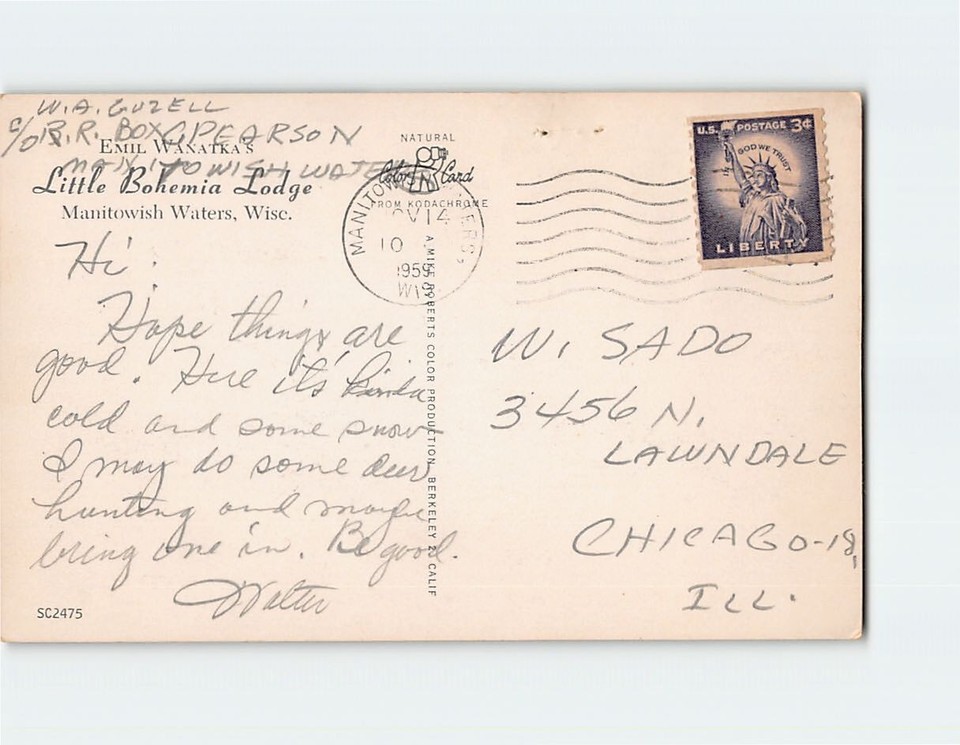 W.A. GUZELL
C/O R.R. BOX PEARSON
EMIL WANATKA'S
MANITOWISH WATE
Little Bohemia Lodge
Manitowish Waters, Wisc.
Hi.
Hope things are
good. Here it's kinda
cold and some snow
I may do some deer
hunting and maybe
bring one in. Be good.
Walter
SC2475
NATURAL
Color Card
FROM KODACHROME
A MIKE ROBERTS COLOR PRODUCTION, BERKELEY 2, CALIF
MANITOWISH WATERS,
NOV 14
10
1959
WIS
U.S. POSTAGE 3¢
IN GOD WE TRUST
LIBERTY
W. SADO
3456 N.
LAWNDALE
CHICAGO-18,
ILL.